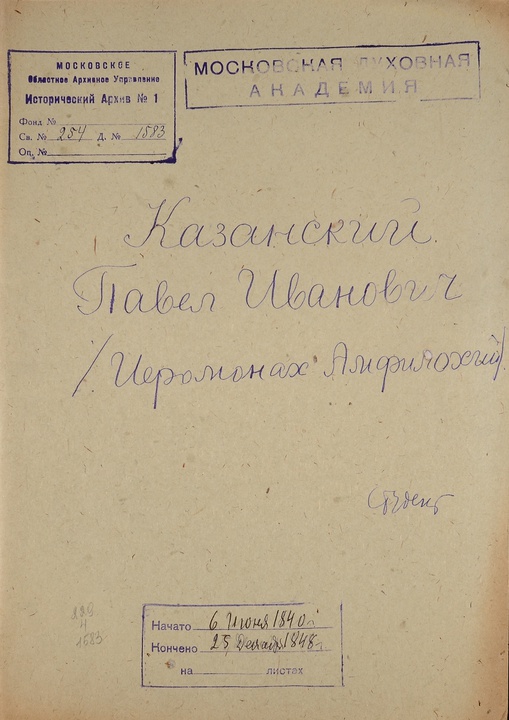 МОСКОВСКОЕ
Областное Архивное Управление
Исторический Архив № 1
Фонд №
Св. № 254 Д. № 1583
Оп. №
МОСКОВСКАЯ ДУХОВНАЯ
АКАДЕМИЯ
Казанский
Павел Иванович
/Иеромонах Амфилохий/
Студент
Начато 6 Июня 1840 г.
Кончено 25 Декабр 1848 г.
на листах